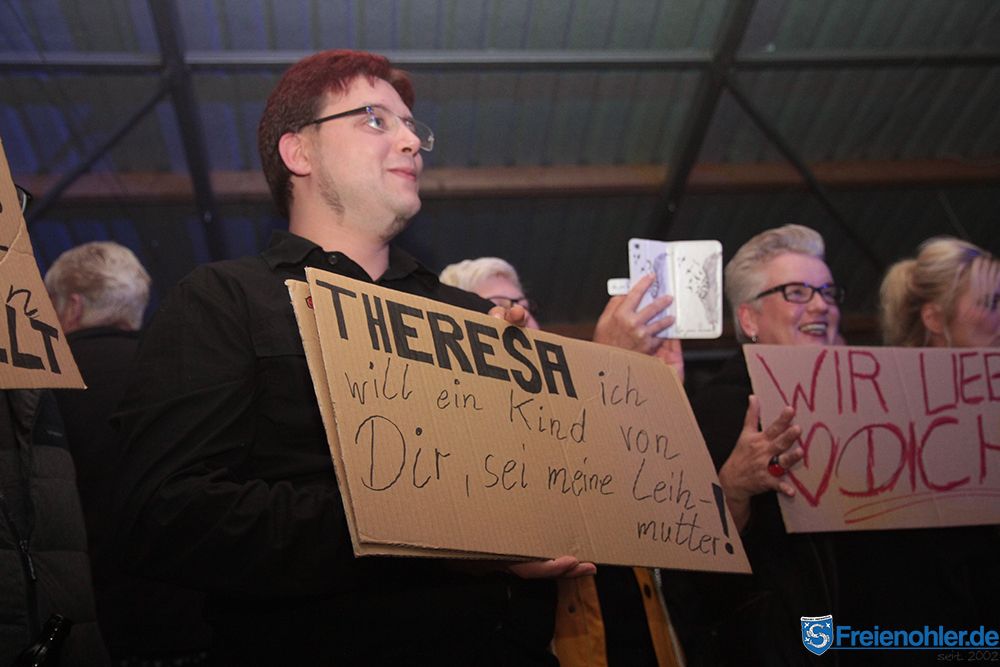 THERESA ich
will ein Kind von
Dir, sei meine Leih-
mutter!
WIR LIEB
DICH
Freienohler.de
seit 2002